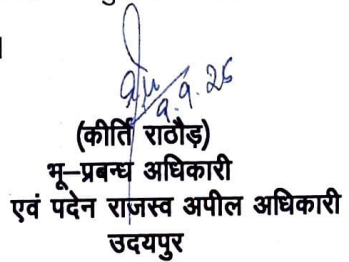 9.9.25
(कीर्ति राठौड़)
भू-प्रबन्ध अधिकारी
एवं पदेन राजस्व अपील अधिकारी
उदयपुर